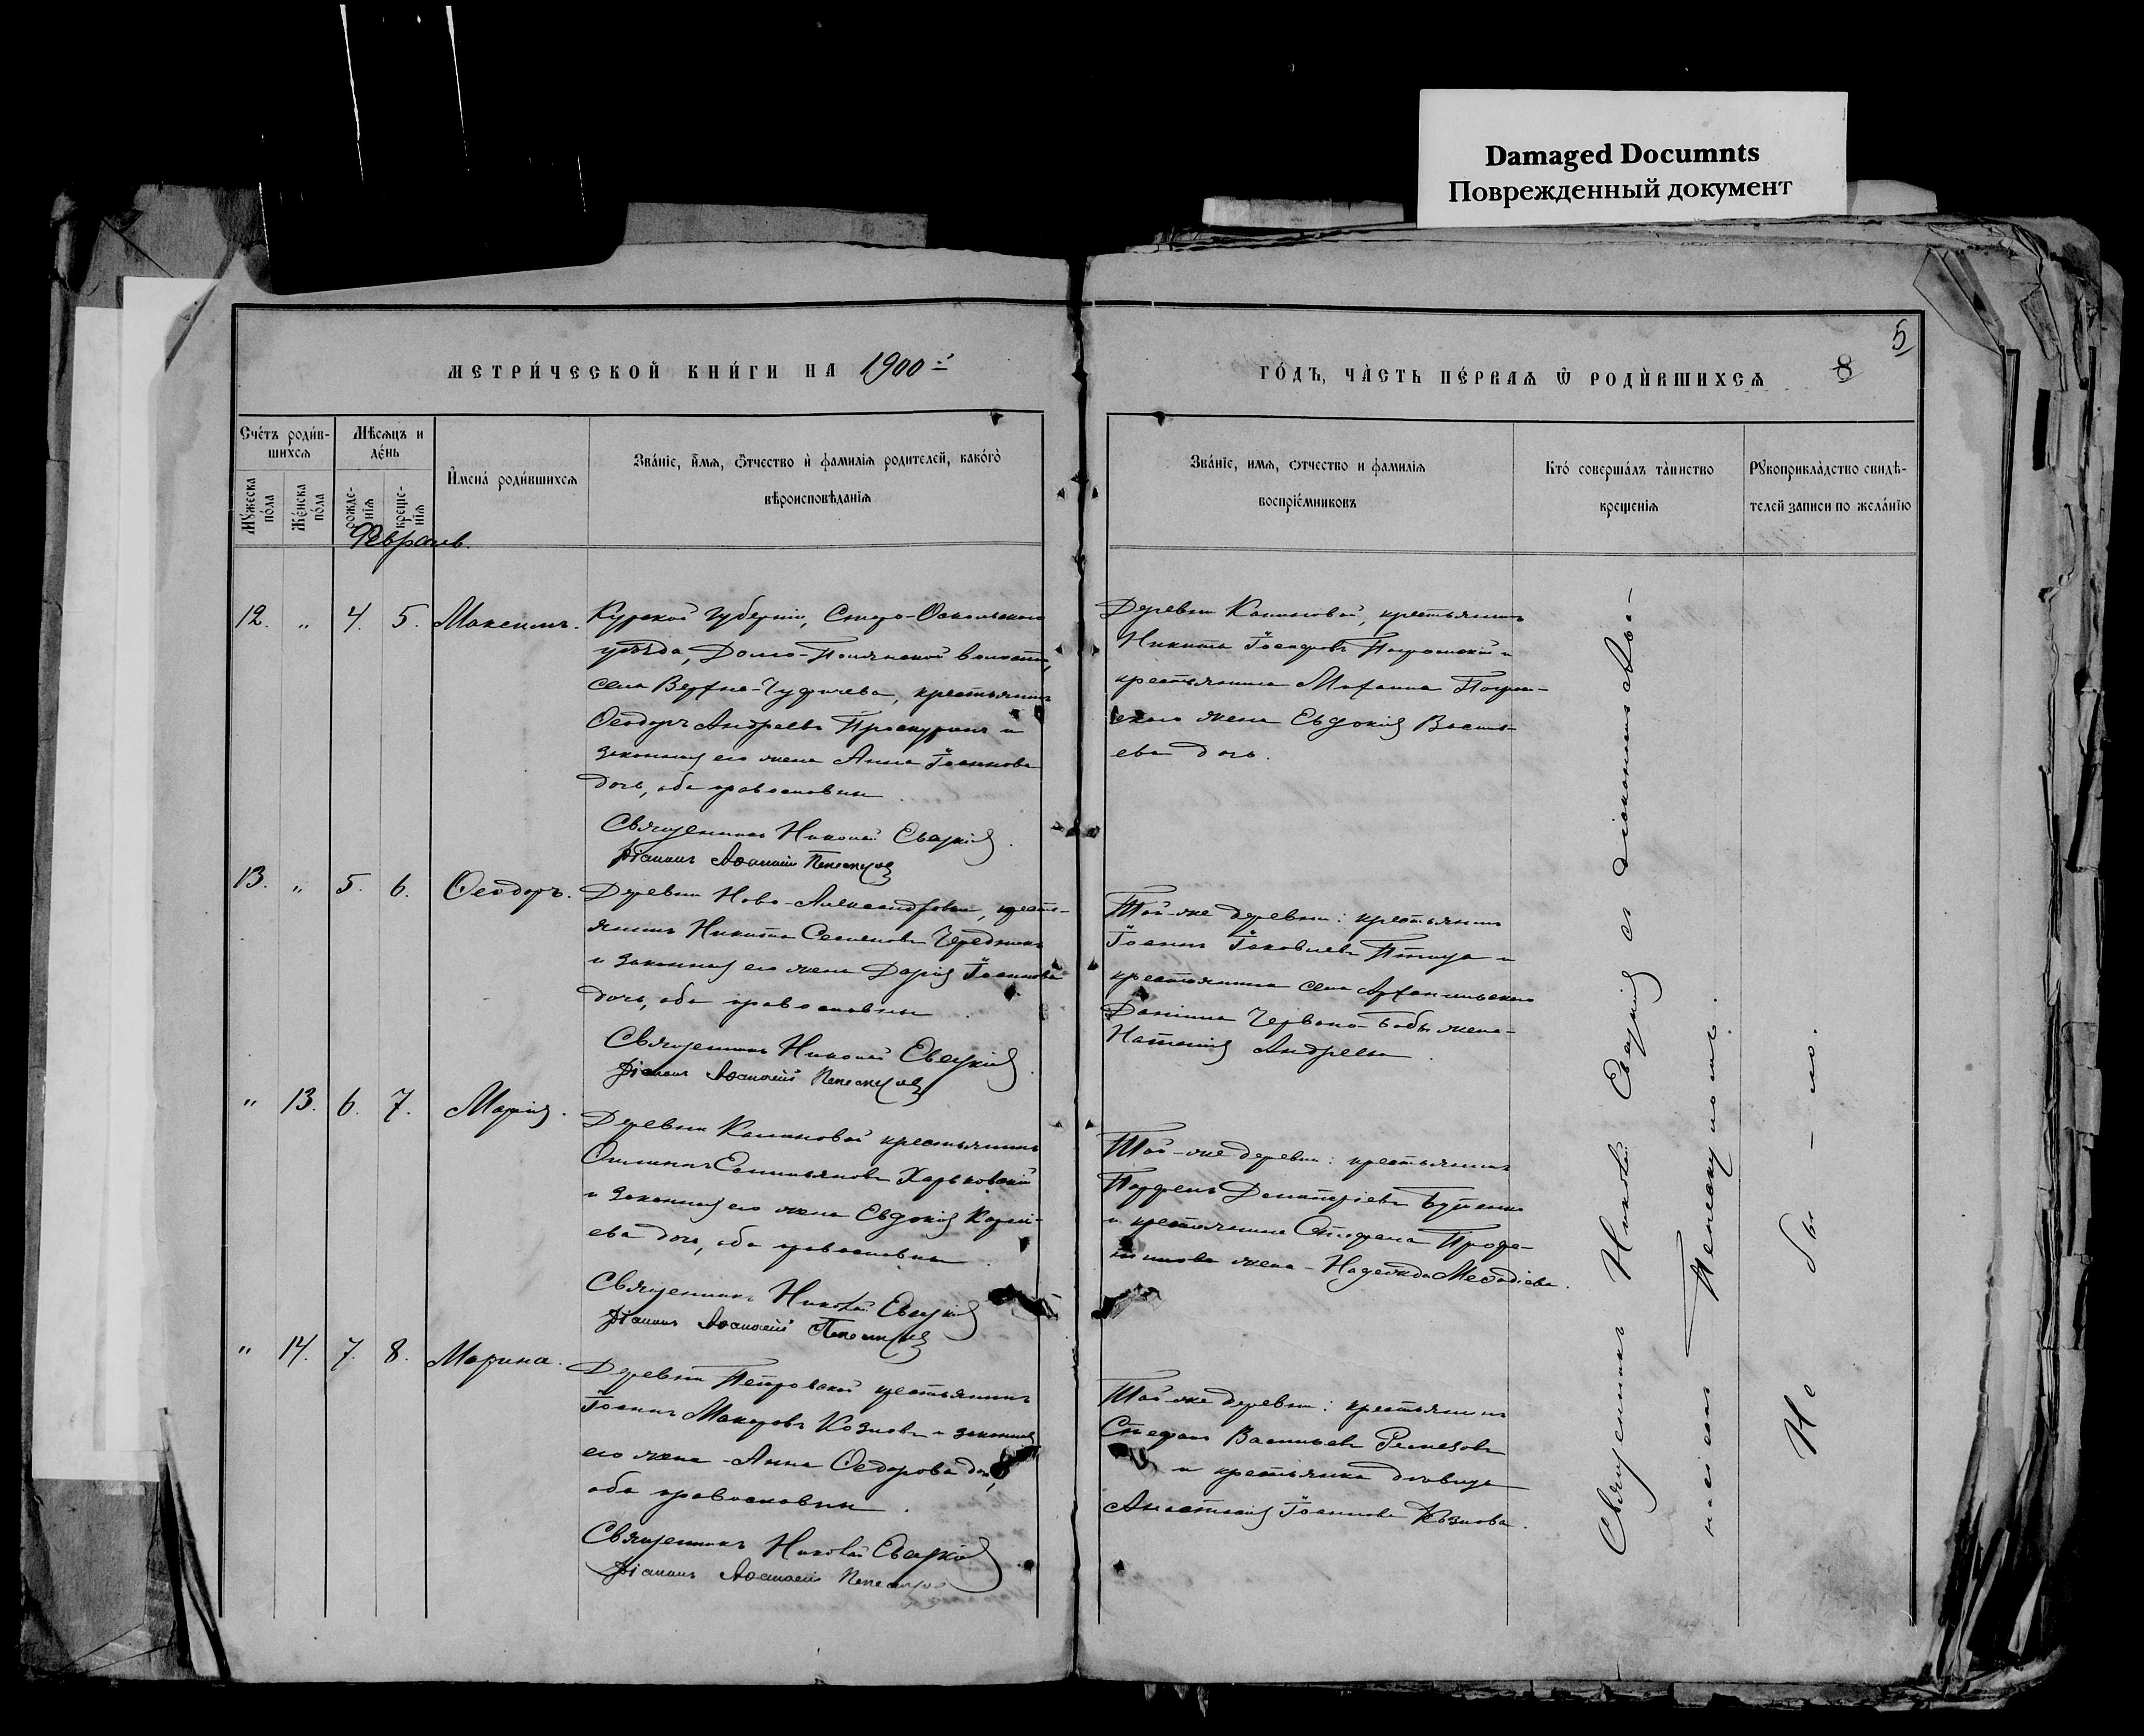 Damaged Documnts
Поврежденный документ
5
МЕТРИ́ЧЕСКОЙ КНИ́ГИ НА 1900-й
ГО́ДЪ, ЧА́СТЬ ПЕ́РВАЯ Ѿ РОДИ́ВШИХСЯ 8
Сче́тъ роди́в-
шихся
Му́жеска по́ла
Же́нска по́ла
Мѣсяцъ и
де́нь
рожде-
нія
креще-
нія
И҆мена́ роди́вшихся
Зва́ніе, и҆́мя, ѻ҆́тчество и҆ фамилія родителей, како́го
вѣроисповѣданія
Зва́ніе, имя, отчество и фамилія
воспріе́мниковъ
Кто́ соверша́лъ та́инство
крещенія
Рꙋкоприкла́дство свидѣ-
телей записи по жела́нію
Февраль.
12. „ 4. 5. Максимъ.
Курской губерніи, Старо-Оскольскаго
уѣзда, Долго-Полянской волости,
села Верхне-Чуфичева, крестьянинъ
Ѳеодоръ Андреевъ Проскуринъ и
законная его жена Анна Іоаннова
дочь, оба православны.
Священникъ Николай Евецкій.
Діаконъ Аѳанасій
Деревни Калиновой, крестьянинъ
Никита
крестьянина Михаила
жена Евдокія Василь-
ева дочь.
13. „ 5. 6. Ѳеодоръ.
Деревни Ново-Александровки, кресть-
янинъ Никита Семеновъ Чередникъ
и законная его жена Дарія Іоаннова
дочь, оба православны.
Священникъ Николай Евецкій.
Діаконъ Аѳанасій
Той-же деревни: крестьянинъ
Іоаннъ Іаковлевъ Птица и
крестьянина села Архангельскаго
Даніила Червоно-Бабы жена-
Наталія Андреева.
„ 13. 6. 7. Марія.
Деревни Калиновой крестьянинъ
Емильяновъ Харьковскій
и законная его жена Евдокія Корні-
ева дочь, оба православны.
Священникъ Николай Евецкій
Діаконъ Аѳанасій
Той-же деревни: крестьянинъ
Парѳенъ Димитріевъ Бутенко
и крестьянина Стефана
жена - Надежда Меѳодіева.
„ 14. 7. 8. Марина.
Деревни Петровской крестьянинъ
Іоаннъ Макаровъ Козловъ и законная
его жена - Анна Ѳедорова дочь,
оба православны.
Священникъ Николай Евецкій
Діаконъ Аѳанасій
Той-же деревни: крестьянинъ
Стефанъ Васильевъ Ремезовъ
и крестьянка дѣвица
Анастасія Іоаннова Козлова.
Священникъ Николай Евецкій съ діакономъ Аѳа-
насіемъ
Не бы-ло.